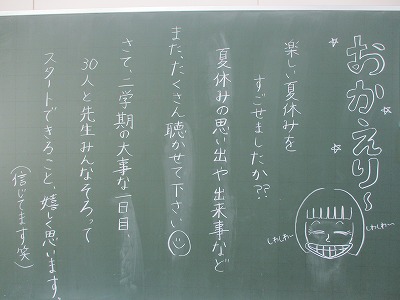 おかえり～
楽しい夏休みを
すごせましたか??
夏休みの思い出や出来事など
また、たくさん聴かせて下さい
さて、二学期の大事な一日目、
30人と先生みんなそろって
スタートできること、嬉しく思います。
(信じてます笑)
しわしわ～
しわしわ～